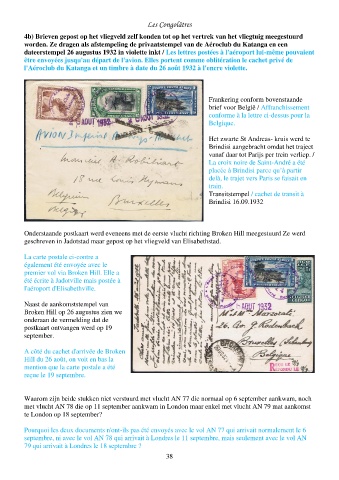 Les Congolâtres
4b) Brieven gepost op het vliegveld zelf konden tot op het vertrek van het vliegtuig meegestuurd
worden. Ze dragen als afstempeling de privaatstempel van de Aéroclub du Katanga en een
dateerstempel 26 augustus 1932 in violette inkt / Les lettres postées à l'aéroport lui-même pouvaient
être envoyées jusqu'au départ de l'avion. Elles portent comme oblitération le cachet privé de
l'Aéroclub du Katanga et un timbre à date du 26 août 1932 à l'encre violette.
Frankering conform bovenstaande
brief voor België / Affranchissement
conforme à la lettre ci-dessus pour la
Belgique.
Het zwarte St Andreas- kruis werd te
Brindisi aangebracht omdat het traject
vanaf daar tot Parijs per trein verliep. /
La croix noire de Saint-André a été
placée à Brindisi parce qu'à partir
delà, le trajet vers Paris se faisait en
train.
Transitstempel / cachet de transit à
Brindisi 16.09.1932
AOUT 1932
AVION Impérial
18 rue
Belgium
Bruxelles
Onderstaande postkaart werd eveneens met de eerste vlucht richting Broken Hill meegestuurd Ze werd
geschreven in Jadotstad maar gepost op het vliegveld van Elisabethstad.
La carte postale ci-contre a
également été envoyée avec le
premier vol via Broken Hill. Elle a
été écrite à Jadotville mais postée à
l'aéroport d'Elisabethville.
Naast de aankomststempel van
Broken Hill op 26 augustus zien we
onderaan de vermelding dat de
postkaart ontvangen werd op 19
september.
A côté du cachet d'arrivée de Broken
Hill du 26 août, on voit en bas la
mention que la carte postale a été
reçue le 19 septembre.
AOUT 1932
Bruxelles
Belgique
Waarom zijn beide stukken niet verstuurd met vlucht AN 77 die normaal op 6 september aankwam, noch
met vlucht AN 78 die op 11 september aankwam in London maar enkel met vlucht AN 79 mat aankomst
te London op 18 september?
Pourquoi les deux documents n'ont-ils pas été envoyés avec le vol AN 77 qui arrivait normalement le 6
septembre, ni avec le vol AN 78 qui arrivait à Londres le 11 septembre, mais seulement avec le vol AN
79 qui arrivait à Londres le 18 septembre ?
38